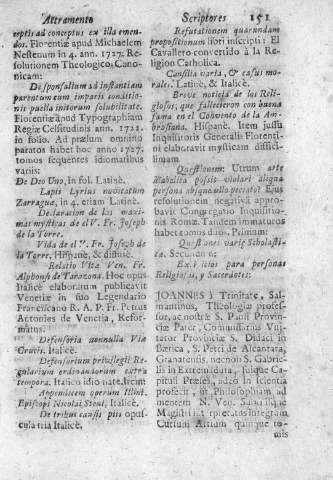 Attramento
Scriptores 151
ceptis ad conceptus ex illa emen-
dos. Florentiæ apud Michaelem
Nestenum in 4. ann. 1727. Re-
solutionem Theologico-Cano-
nicam:
De sponsalium ad instantiam
parentum cum imparis conditio-
nis puella initorum solubilitate.
Florentiæ apud Typographiam
Regiæ Celsitudinis ann. 1722.
in folio. Ad prælum omnino
paratos habet hoc anno 1727,
tomos sequentes idiomatibus
variis:
De Deo Uno, in fol. Latinè.
Lapis Lyrius novitatum
Zarragua, in 4. etiam Latinè.
Declaracion de las maxi-
mas mysticas de el V. Fr. Joseph
de la Torre.
Vida de el V. Fr. Joseph de
la Torre, Hispanè, & diffusè.
Relatio Vitæ Ven. Fr.
Alphonsi de Tarazona. Hoc opus
Italicè elaboratum publicavit
Venetiæ in suo Legendario
Franciscano R. A. P. Fr. Petrus
Antonius de Venetia, Refor-
matus.
Defensoria nonnulla Via
Crucis. Italicè.
Defensorium privilegii Re-
gularium ordinandorum extra
tempora. Italico idiomate. Item:
operum Illmi.
Episcopi Nicolai Stent, Italicè.
De tribus causis piis opuscu-
la tria Italicè.
Refutationem quarundam
propositionum libri inscripti: El
Cavallero convertido à la Re-
ligion Catholica.
Consilia varia, & casus mo-
rale. Latinè, & Italicè.
Breve noticia de los Reli-
giosos, que fallecieron con buena
fama en el Convento de la Am-
brosiana. Hispanè. Item jussu
Inquisitoris Generalis Florenti-
ni elaboravit mysticam disci-
linam.
Quæstionem: Utrum arte
diabolica possit violari aliqua
persona absque ullo peccato? Ejus
resolutionem negativâ appro-
bavit Congregatio Inquisitio-
nis Romæ. Tandem immaturos
habet tomos duos. Primum:
Quæstiones variæ Scholasti-
cæ. Secundum:
Exercitios para personas
Religiosas, y Sacerdotes.
JOANNES à Trinitate, Sal-
mantinus, Theologiæ profes-
sor, ac nostræ S. Pauli Provin-
ciæ Pater, Commissarius Visi-
tator Provinciæ S. Didaci in
Bætica, S. Petri de Alcantara,
Granatensis, necnon S. Gabrie-
lis in Extremadura, suique Ca-
pituli Præses, adeò in scientia
profecit, ut Philosophiam ad
mentem N. Ven. Subtilique
Magistri interpretatus integram
Cursum Artium quinque to-
mis